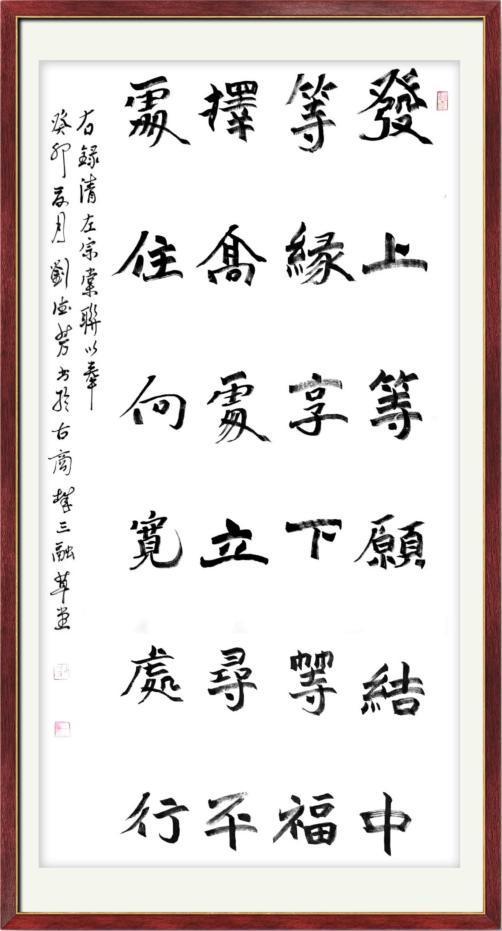 發上等願結中
等緣享下等福
擇髙處立尋平
處住向寬處行
右錄清左宗棠聯以奉
癸卯月劉德芳書於古商三融草堂